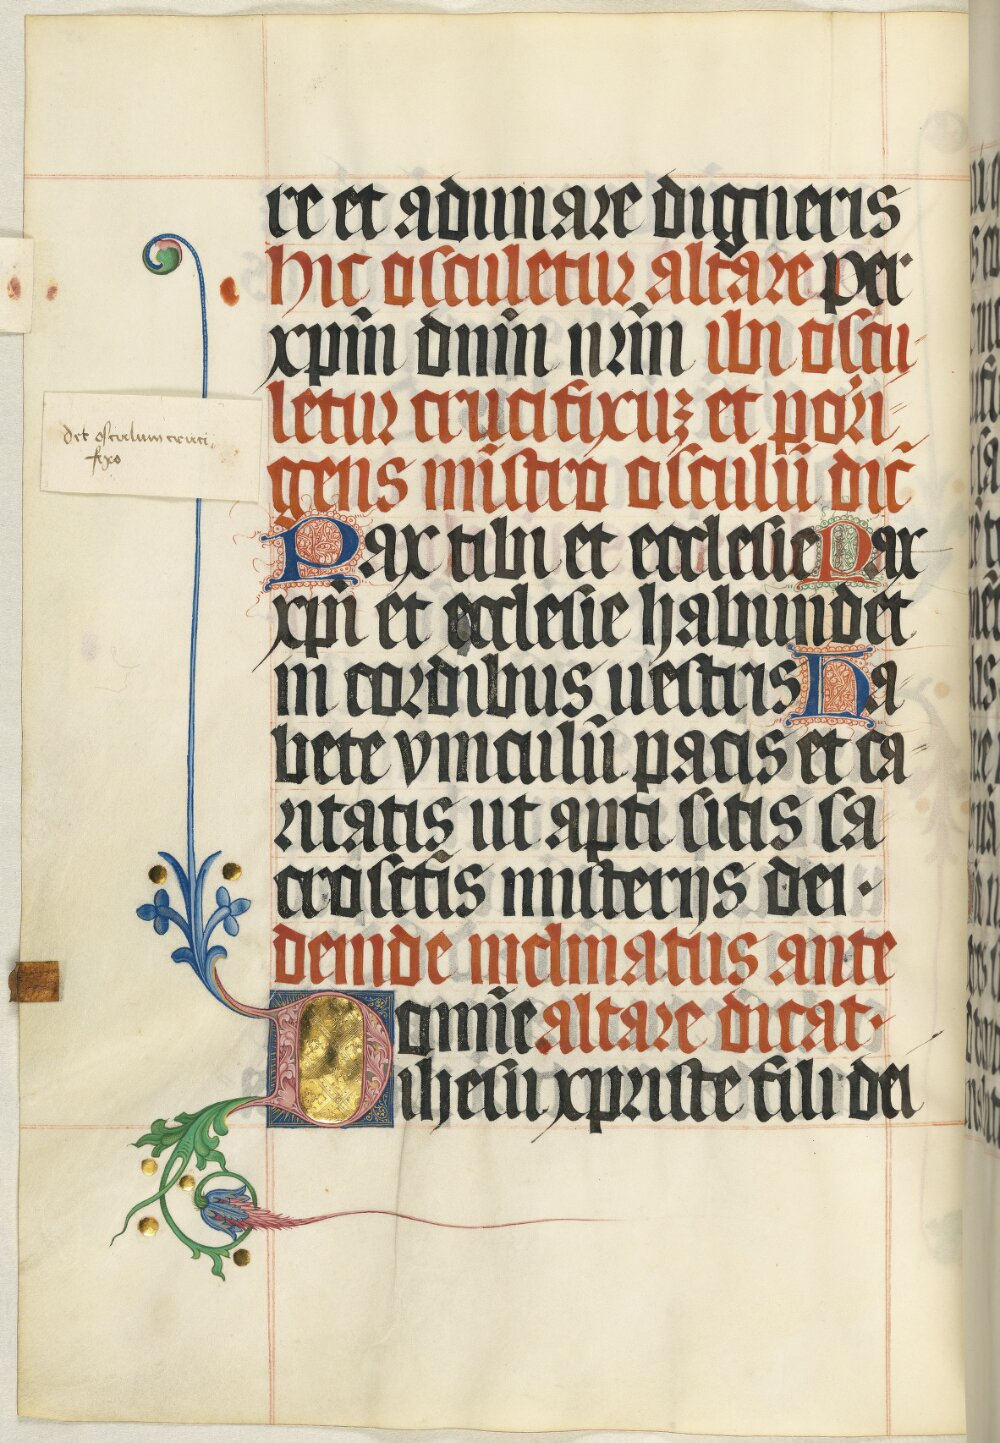 re et adunare digneris
hic osculetur altare per
xp̄m dn̄m nr̄m ibi oscu-
letur crucifixuʒ et pori-
gens mīstro osculū dic̄
Pax tibi et ecclesie Pax
xp̄i et ecclesie habundet
in cordibus uestris Ha
bete vinculū pacis et ca
ritatis ut apti sitis sa
crosctīs misterijs dei·
deinde inclinatus ante
Domīe altare dicat·
ihesu xpriste fili dei
det osculum cruci-
fixo